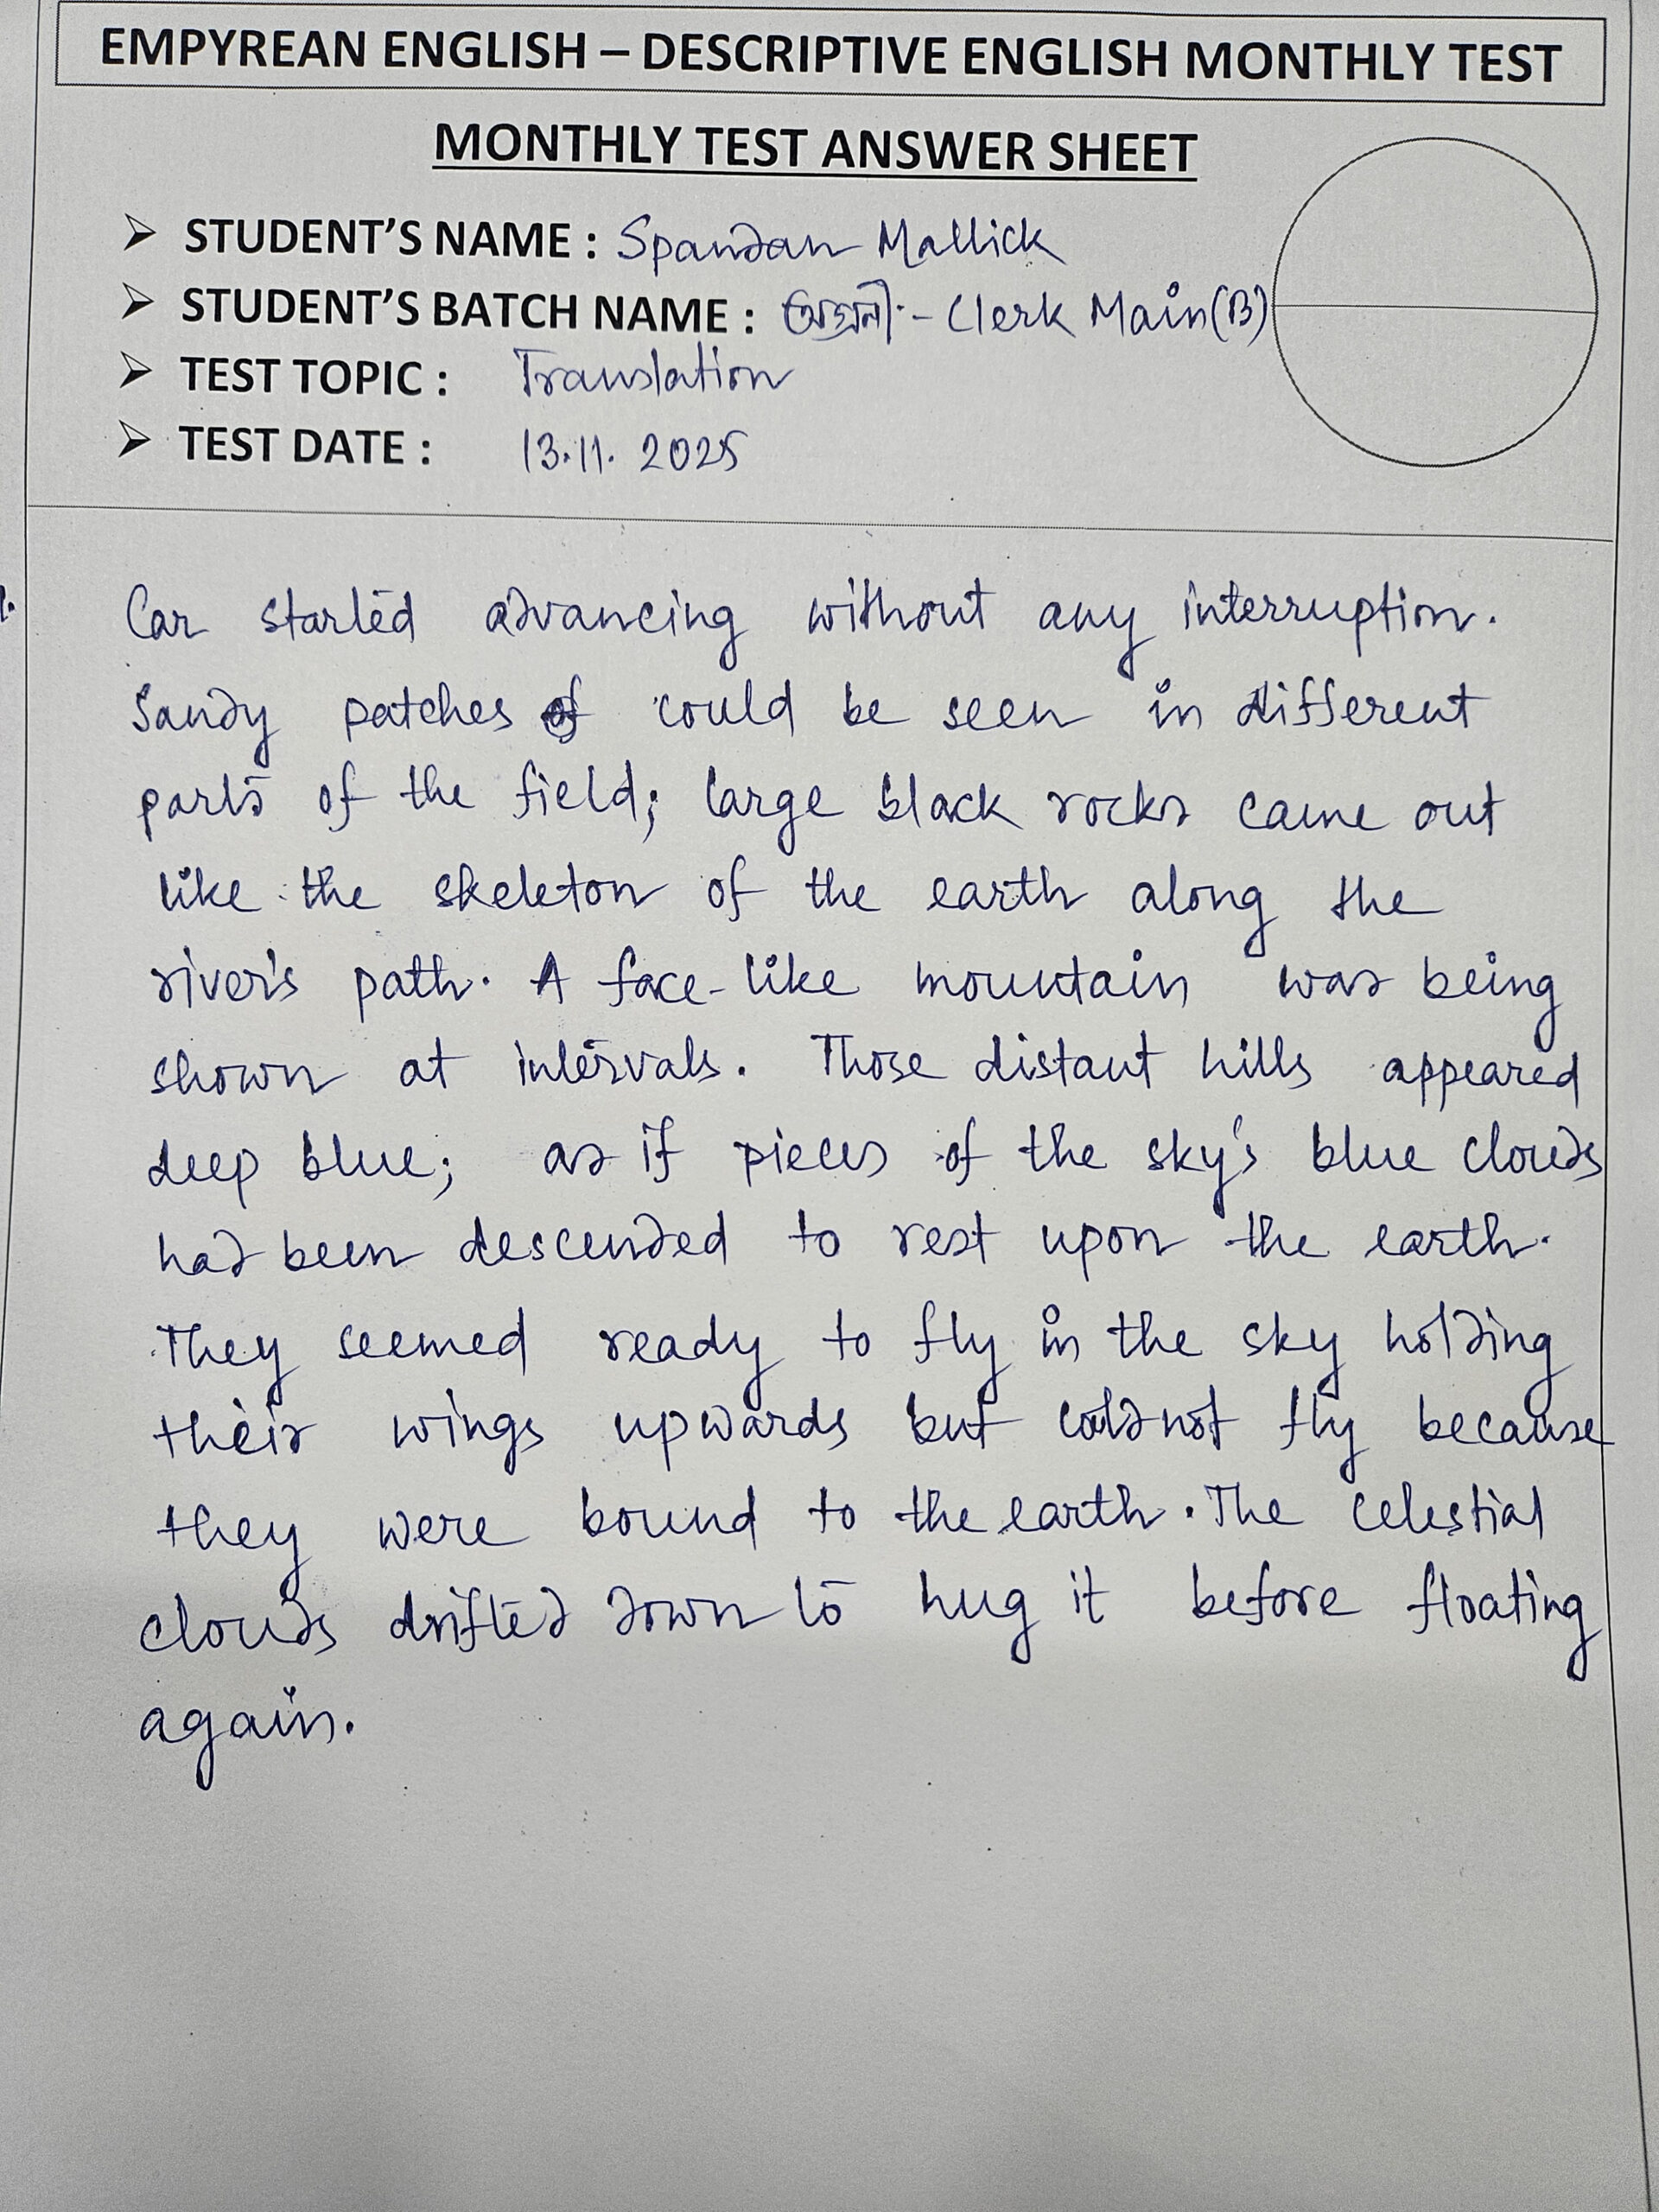 EMPYREAN ENGLISH – DESCRIPTIVE ENGLISH MONTHLY TEST
MONTHLY TEST ANSWER SHEET
➢ STUDENT'S NAME : Spandan Mallick
➢ STUDENT'S BATCH NAME : - Clerk Main(B)
➢ TEST TOPIC : Translation
➢ TEST DATE : 13.11.2025
Car started advancing without any interruption.
Sandy patches could be seen in different
parts of the field; large black rocks came out
like the skeleton of the earth along the
river's path. A face-like mountain was being
shown at intervals. Those distant hills appeared
deep blue; as if pieces of the sky's blue clouds
had been descended to rest upon the earth.
They seemed ready to fly in the sky holding
their wings upwards but could not fly because
they were bound to the earth. The celestial
clouds drifted down to hug it before floating
again.